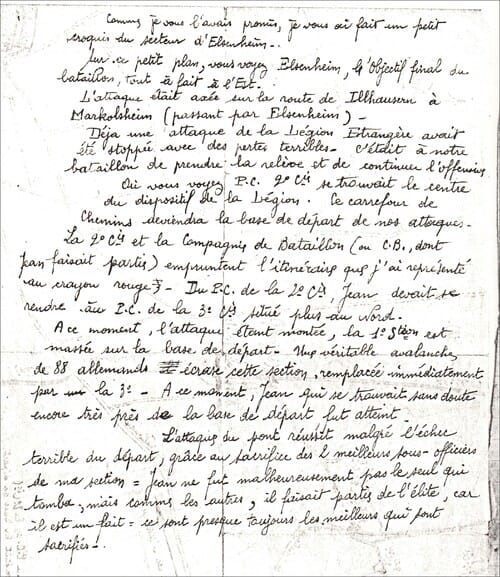 Comme je vous l'avais promis, je vous ai fait un petit
croquis du secteur d'Elsenheim -.
Sur ce petit plan, vous voyez Elsenheim, l'objectif final du
bataillon, tout à fait à l'Est -
L'attaque était axée sur la route de Illhausern à
Markolsheim (passant par Elsenheim) -
Déja une attaque de la Légion Etrangère avait
été stoppée avec des pertes terribles - C'était à notre
bataillon de prendre la relève et de continuer l'offensive
Où vous voyez P.C. 2° Cie se trouvait le centre
du dispositif de la Légion. Ce carrefour de
Chemins deviendra la base de départ de nos attaques -
La 2° Cie et la Compagnie de Bataillon (ou C.B., dont
Jean faisait partie) empruntent l'itinéraire que j'ai représenté
au crayon rouge - Du P.C. de la 2° Cie, Jean devait se
rendre au P.C. de la 3° Cie situé plus au Nord -
A ce moment, l'attaque étant montée, la 1° Stéon est
massée sur la base de départ - Une véritable avalanche
de 88 allemands écrase cette section, remplacée immédiatement
par la 3° - A ce moment, Jean qui se trouvait sans doute
encore très près de la base de départ fut atteint -
L'attaque du pont réussit malgré l'échec
terrible du départ, grâce au sacrifice des 2 meilleurs sous-officiers
de ma section = Jean ne fut malheureusement pas le seul qui
tomba, mais comme les autres, il faisait partie de l'élite, car
il est un fait = ce sont presque toujours les meilleurs qui sont
sacrifiés -.